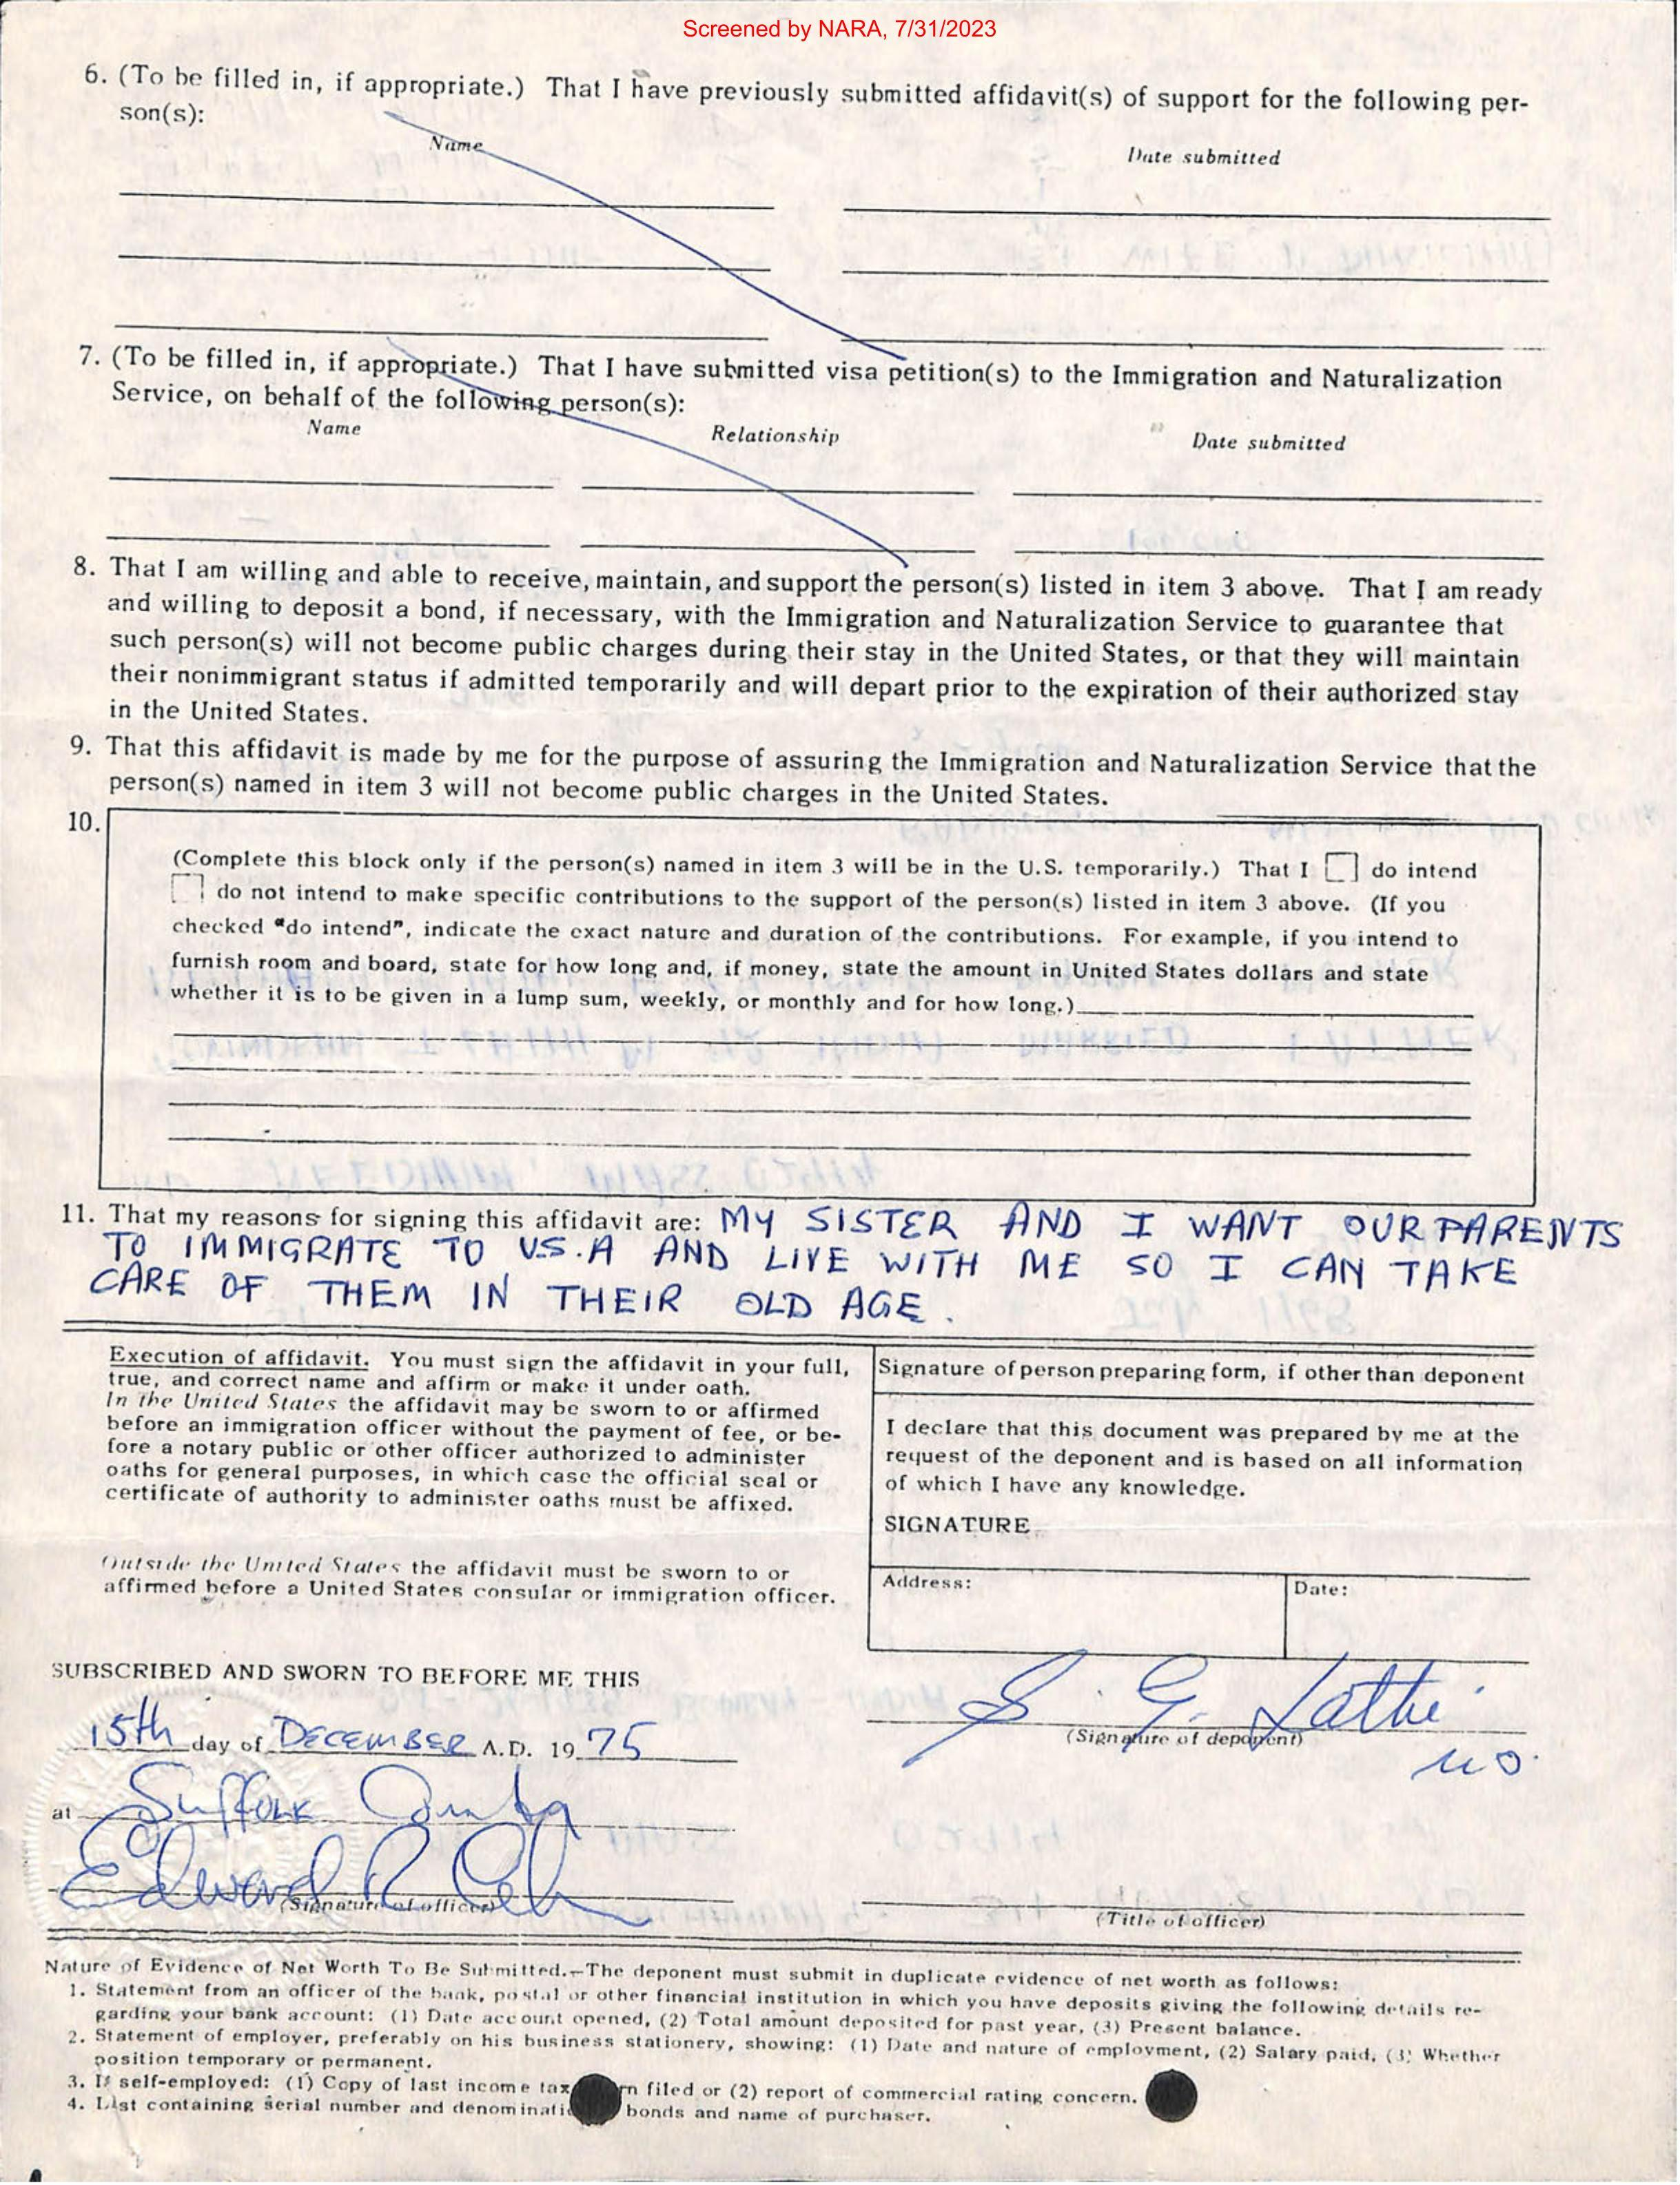 Screened by NARA, 7/31/2023
6. (To be filled in, if appropriate.) That I have previously submitted affidavit(s) of support for the following per-
son(s):
Name
Date submitted
7. (To be filled in, if appropriate.) That I have submitted visa petition(s) to the Immigration and Naturalization
Service, on behalf of the following person(s):
Name Relationship Date submitted
8. That I am willing and able to receive, maintain, and support the person(s) listed in item 3 above. That I am ready
and willing to deposit a bond, if necessary, with the Immigration and Naturalization Service to guarantee that
such person(s) will not become public charges during their stay in the United States, or that they will maintain
their nonimmigrant status if admitted temporarily and will depart prior to the expiration of their authorized stay
in the United States.
9. That this affidavit is made by me for the purpose of assuring the Immigration and Naturalization Service that the
person(s) named in item 3 will not become public charges in the United States.
10.
(Complete this block only if the person(s) named in item 3 will be in the U.S. temporarily.) That I do intend
do not intend to make specific contributions to the support of the person(s) listed in item 3 above. (If you
checked "do intend", indicate the exact nature and duration of the contributions. For example, if you intend to
furnish room and board, state for how long and, if money, state the amount in United States dollars and state
whether it is to be given in a lump sum, weekly, or monthly and for how long.)
11. That my reasons for signing this affidavit are: MY SISTER AND I WANT OUR PARENTS
TO IMMIGRATE TO U.S.A AND LIVE WITH ME SO I CAN TAKE
CARE OF THEM IN THEIR OLD AGE.
Execution of affidavit. You must sign the affidavit in your full,
true, and correct name and affirm or make it under oath.
In the United States the affidavit may be sworn to or affirmed
before an immigration officer without the payment of fee, or be-
fore a notary public or other officer authorized to administer
oaths for general purposes, in which case the official seal or
certificate of authority to administer oaths must be affixed.
Outside the United States the affidavit must be sworn to or
affirmed before a United States consular or immigration officer.
Signature of person preparing form, if other than deponent
I declare that this document was prepared by me at the
request of the deponent and is based on all information
of which I have any knowledge.
SIGNATURE
Address: Date:
SUBSCRIBED AND SWORN TO BEFORE ME THIS
15th day of DECEMBER A.D. 19 75
S. G. Lathi
(Signature of deponent)
at Suffolk County
Edward R
(Signature of officer)
(Title of officer)
Nature of Evidence of Net Worth To Be Submitted.—The deponent must submit in duplicate evidence of net worth as follows:
1. Statement from an officer of the bank, postal or other financial institution in which you have deposits giving the following details re-
garding your bank account: (1) Date account opened, (2) Total amount deposited for past year, (3) Present balance.
2. Statement of employer, preferably on his business stationery, showing: (1) Date and nature of employment, (2) Salary paid, (3) Whether
position temporary or permanent.
3. If self-employed: (1) Copy of last income tax rn filed or (2) report of commercial rating concern.
4. List containing serial number and denominati bonds and name of purchaser.